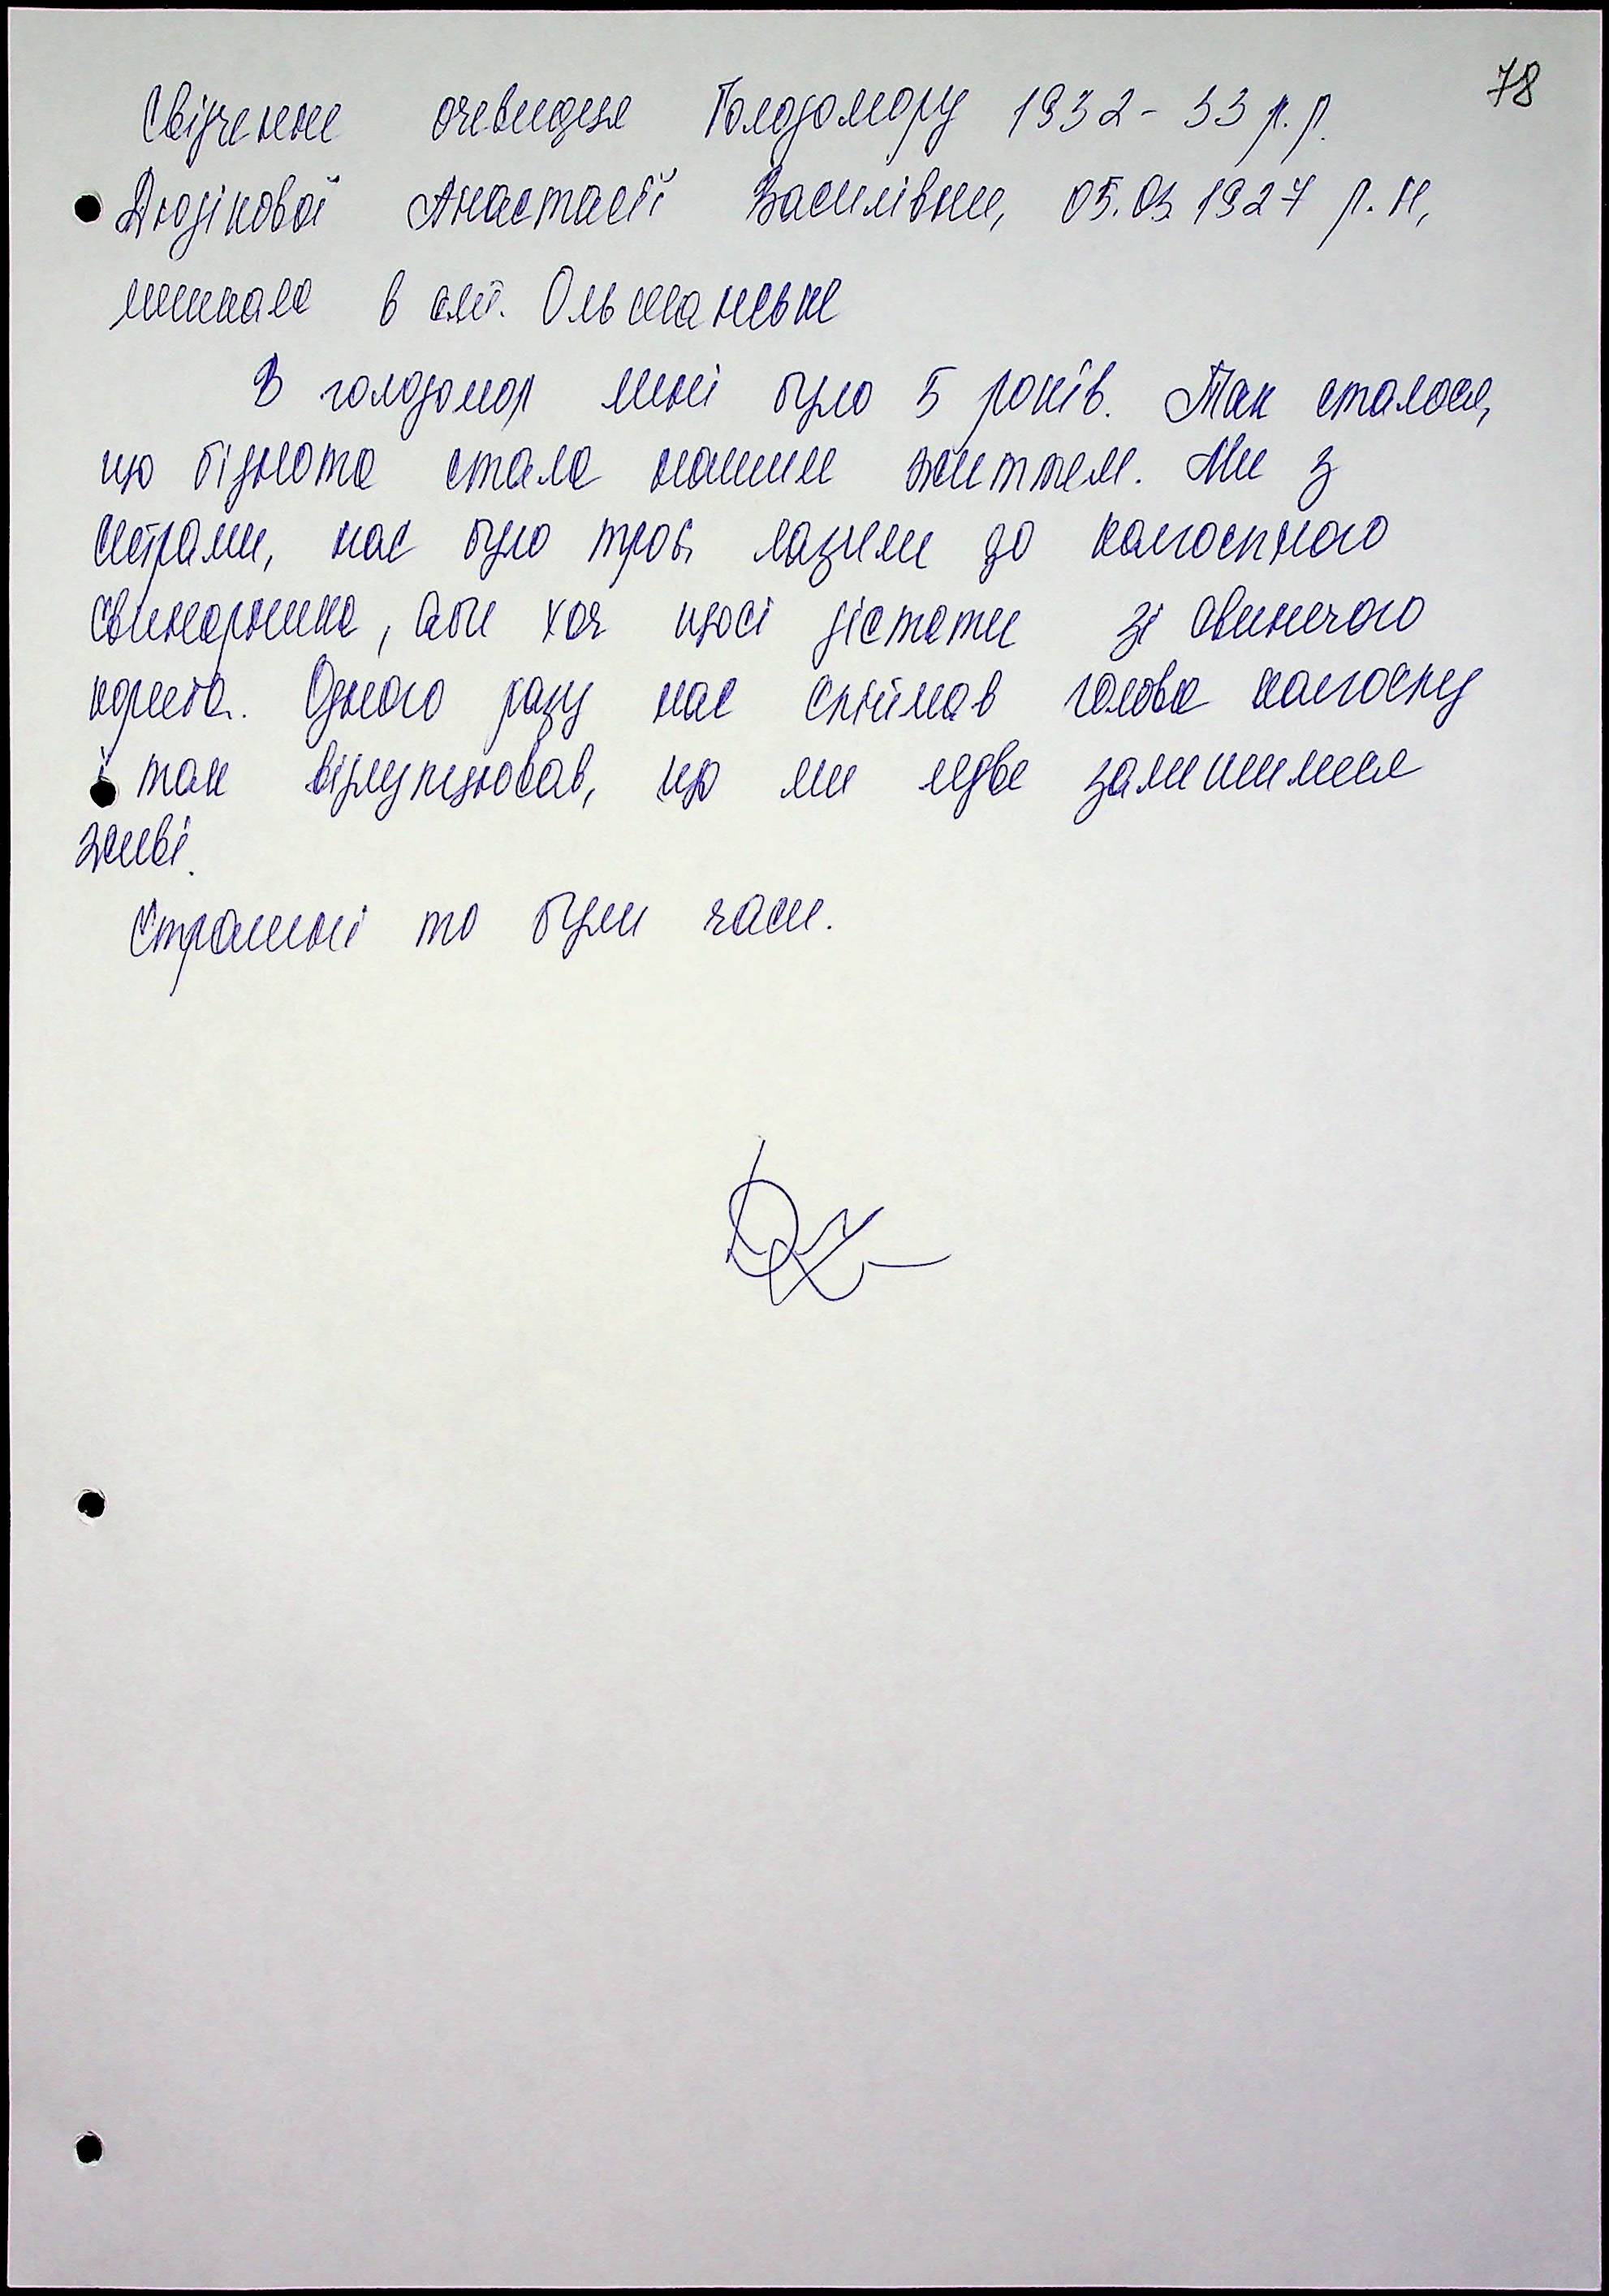 78
Свідчення очевидця Голодомору 1932-33 р.р.
Дюдікової Анастасії Василівни, 05.03.1927 р.н,
мешкала в смт. Ольшанське
В голодомор мені було 5 років. Так сталося,
що біднота стала нашим життєм. Ми з
сестрами, нас було троє, лазили до колгоспного
свинарника, аби хоч щось дістати зі свинячого
корита. Одного разу нас спіймав голова колгоспу
і так відлупцював, що ми ледве залишилися
живі.
Страшні то були часи.